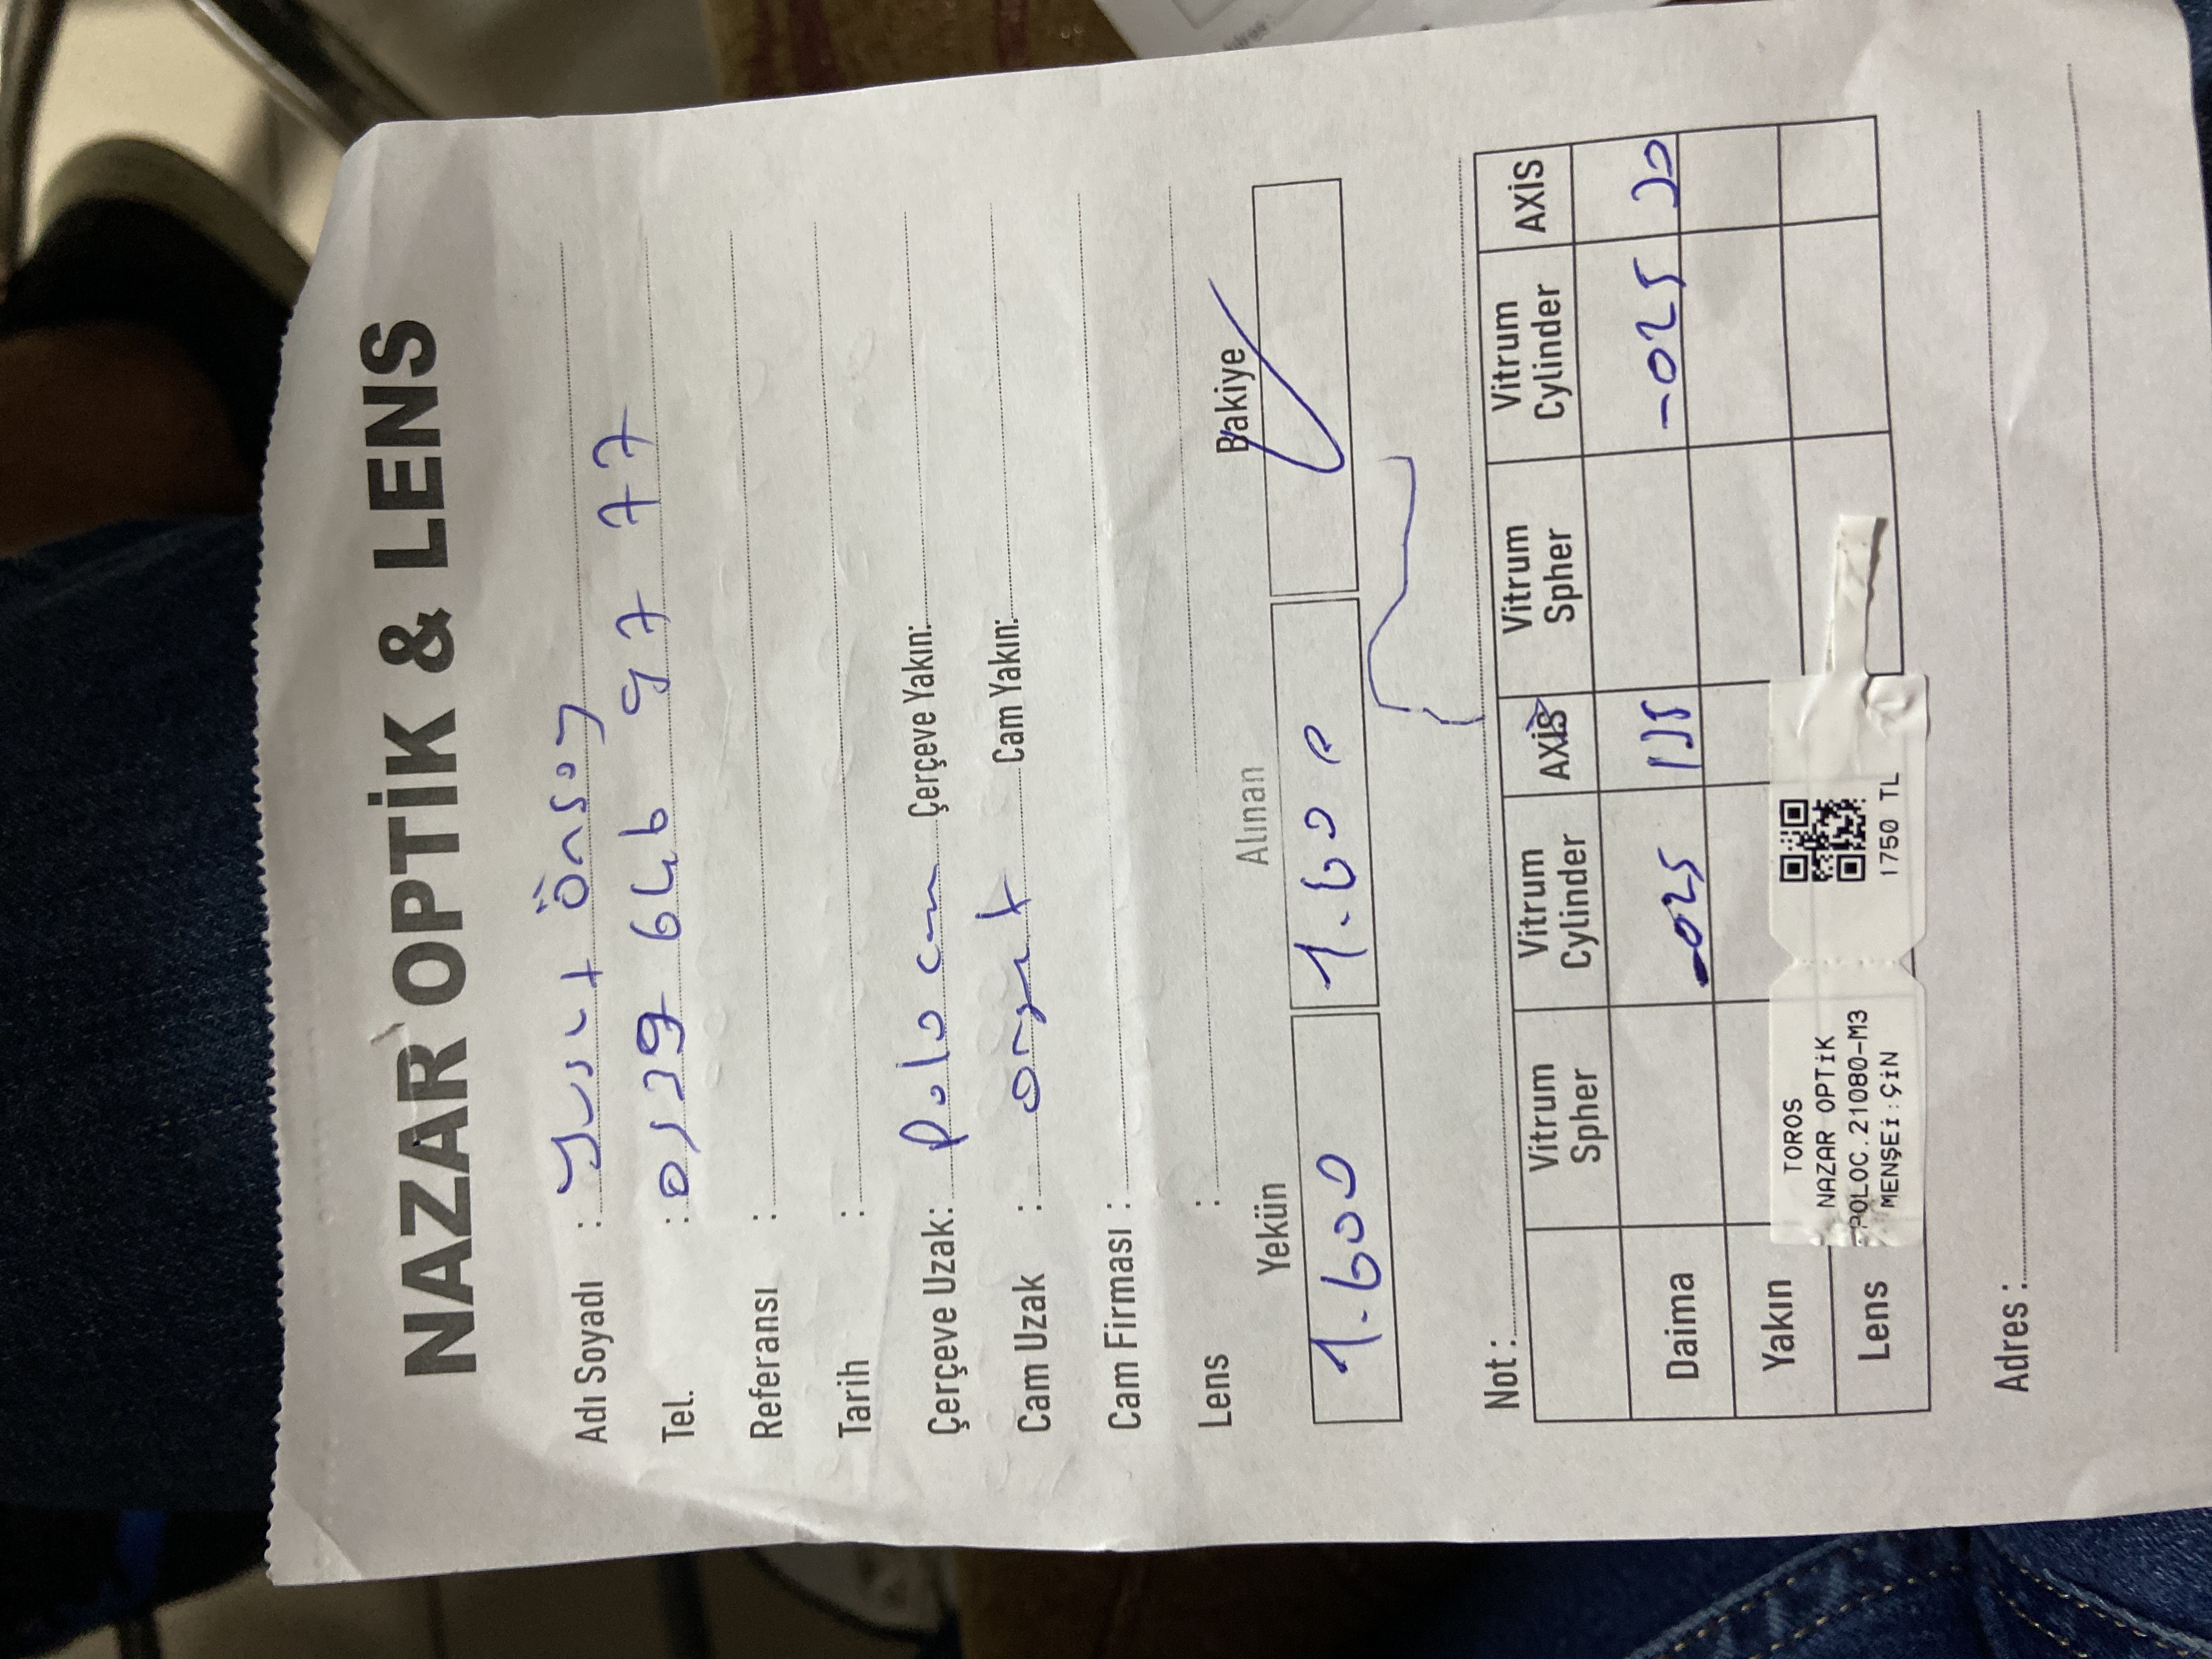 NAZAR OPTİK & LENS
Adı Soyadı : Yusuf Önsoy
Tel. : 0539 646 97 77
Referansı :
Tarih :
Çerçeve Uzak: Polo Çerçeve Yakın:
Cam Uzak : Cam Yakın:
Cam Firması :
Lens :
Yekün Alınan Bakiye
1.600 1.600
Not :
Vitrum Spher Vitrum Cylinder AXİS Vitrum Spher Vitrum Cylinder AXİS
Daima -025 -025
Yakın
Lens
TOROS
NAZAR OPTiK
POLOC.21080-M3
MENŞEi:ÇiN
1750 TL
Adres :